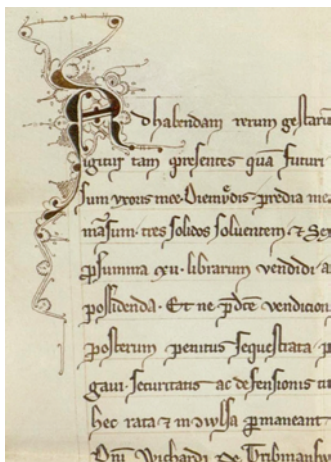 Ad habendam rerum gestaru
igitur tam presentes quā futuri
sum vxoris mee. Diemv̊dis. predia me
māsum. tres solidos soluentem. ⁊ Sex
ꝑ summa xii. librarum vendidi a
possidenda. Et ne p̄dc̄e vendicion
posterum penitus sequestrata p
gaui. securitatis ac defensionis ti
hec rata ⁊ in ↄwlsa permaneant.
Wichardi de